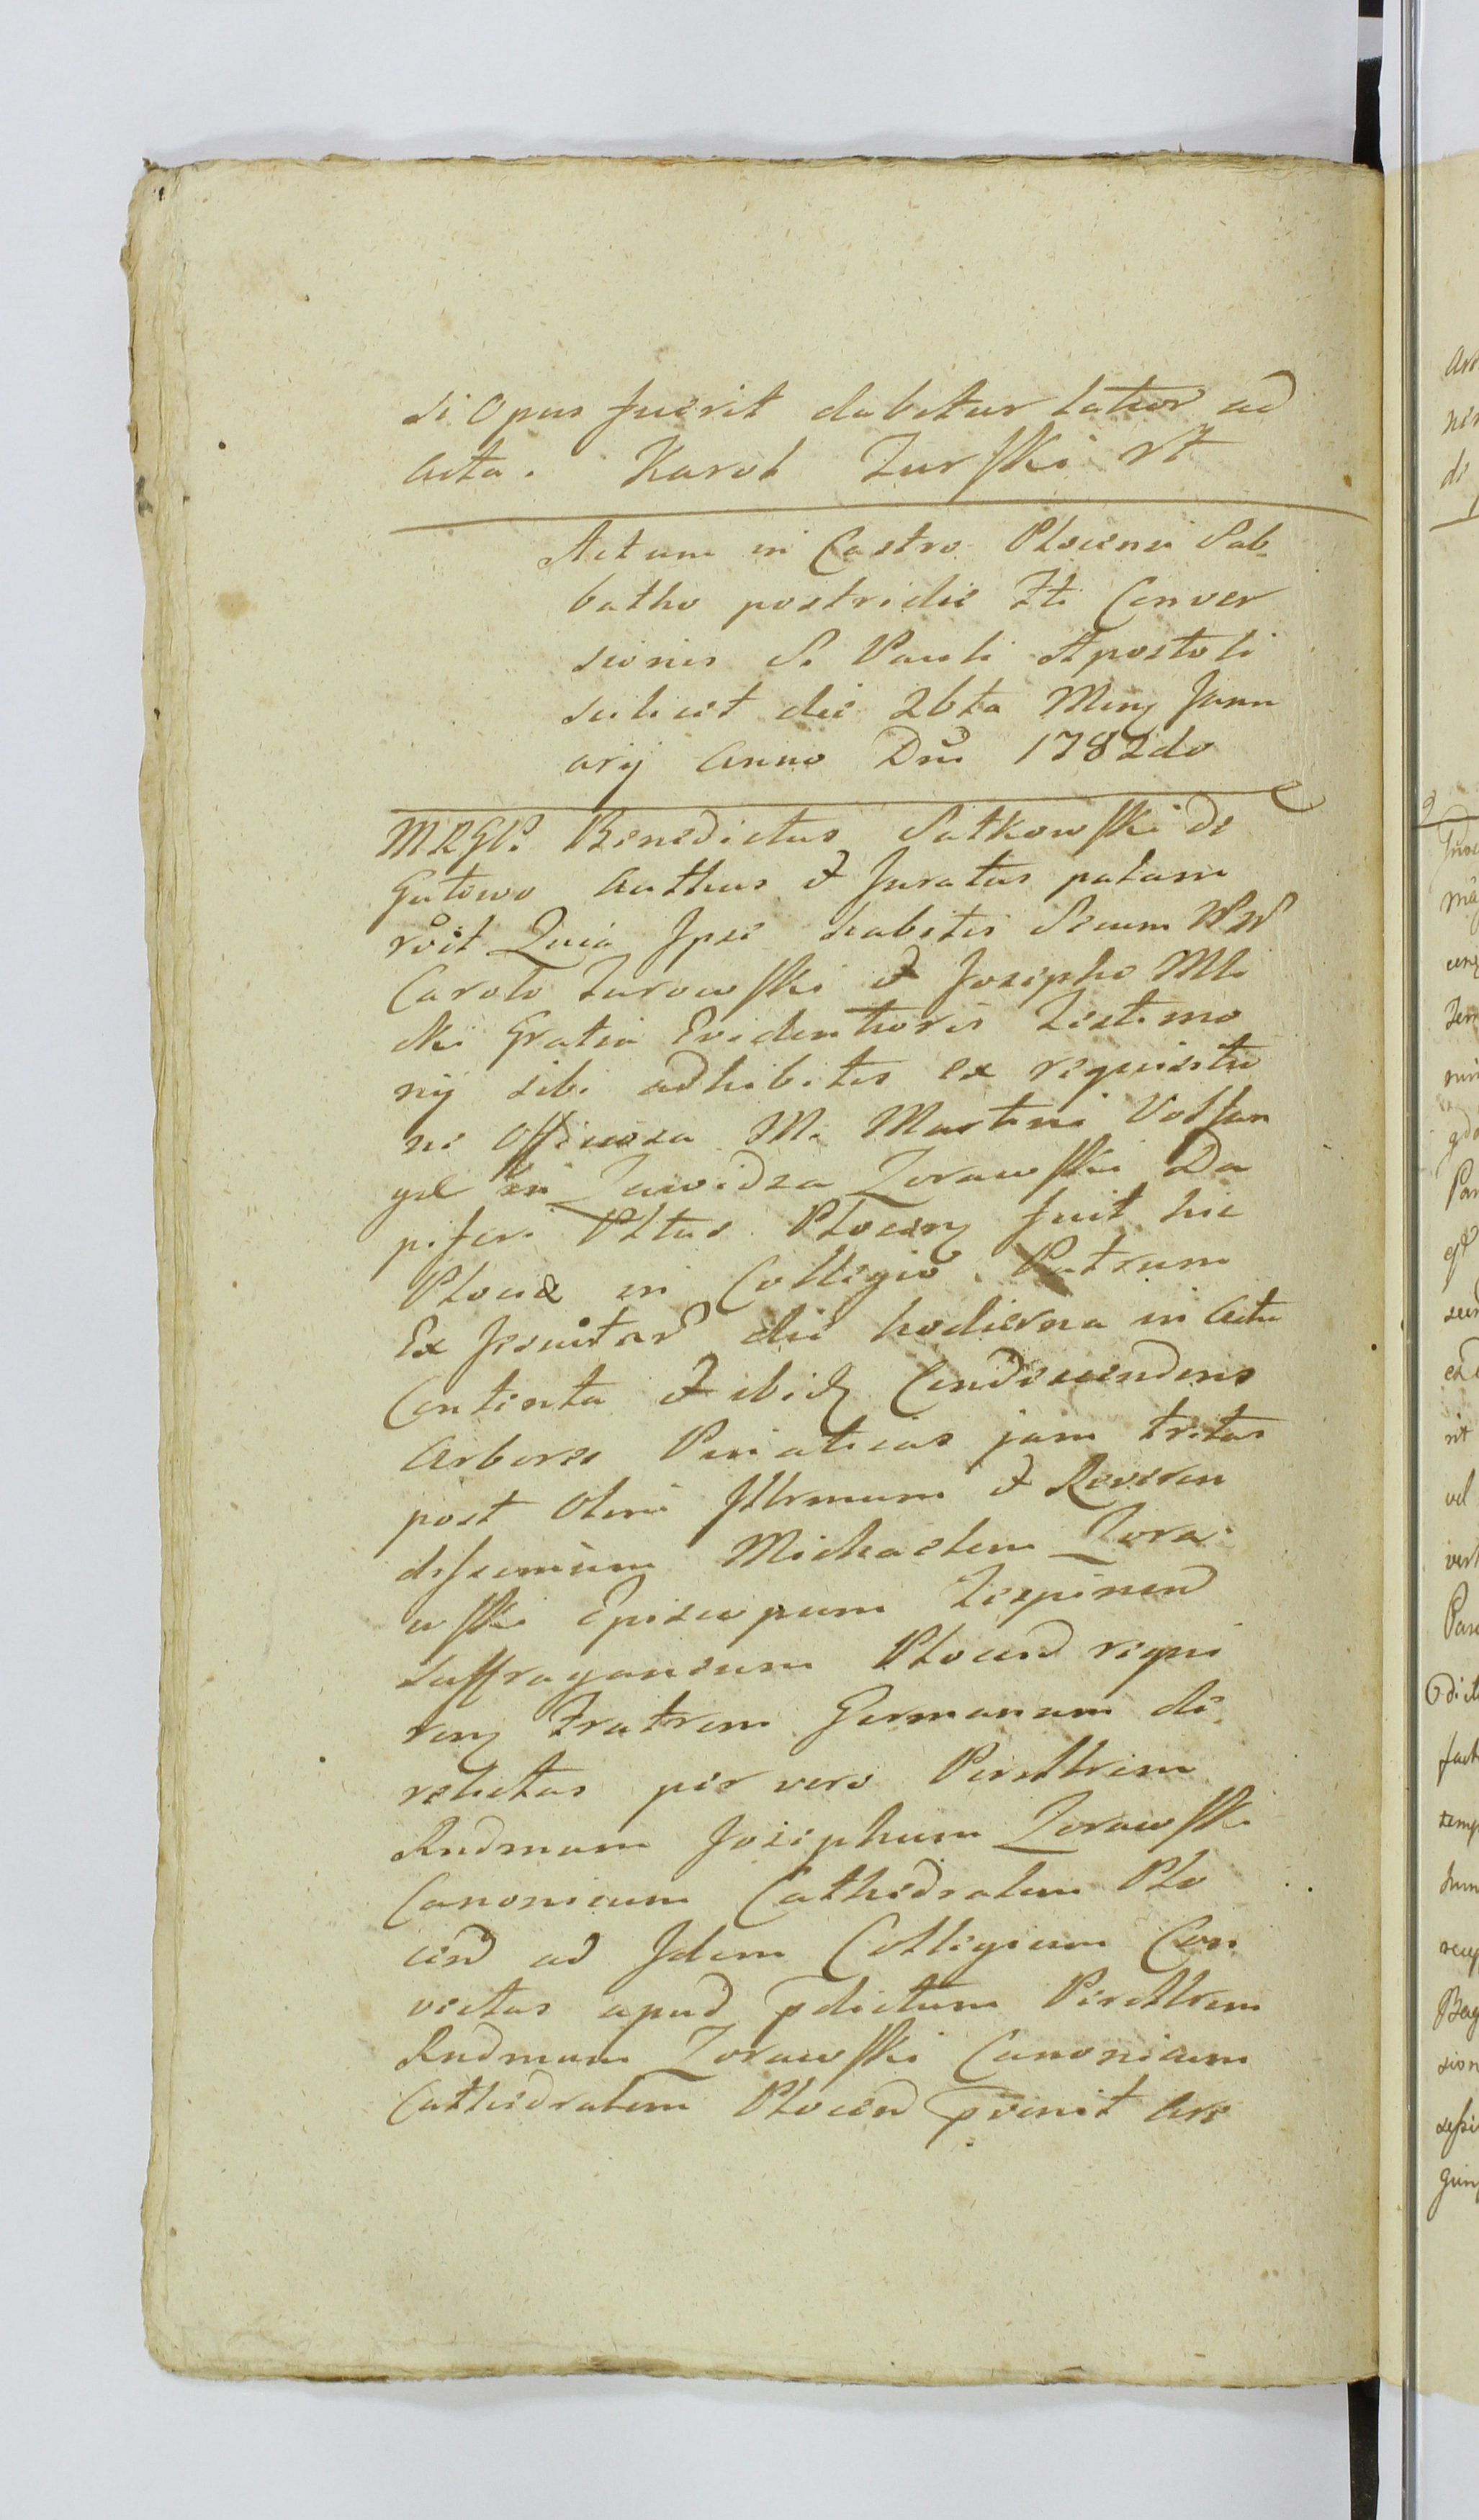 si Opus fuerit dabitur latior ad
Acta. Karol Zurski
Actum in Castro Plocensi Sab-
batho postridie Fti Conver
sionis S. Pauli Apostoli
scilicet die 26ta Mens Janu
arij Anno Dni 1782do
MRGP. Benedictus Sutkowski de
Gutowo Authus et Juratus palam
rvit Quia Ipse habitis Secum NN
Carolo Zurowski et Josepho Mli
cki Gratia Evidentioris Testimo
nij sibi adhibitis ex requisitio
ne Officiosa M. Martini Volfan
go in Zawidza Zorawski Da
piferi Pltus Plocens fuit hic
Plociæ in Collegio Patrum
Ex Jesuitar die hodierna in Actu
Contenta et ibid Condescendens
Arbores Periaticas jam tritas
post Olim Illrmum et Reveren
dissimum Michaelem Zora
wski Episcopum Tespinens
Suffraganeum Plocens requi
rens Fratrem Germanum de
relictas per vero Perillrem
Rndmum Josephum Zorawski
Canonicum Cathedralem Plo
cens ad Idem Collegium Con
vectas apud pdictum Perillrem
Rndmum Zorawski Canonicum
Cathedralem Plocens pvenit Arr